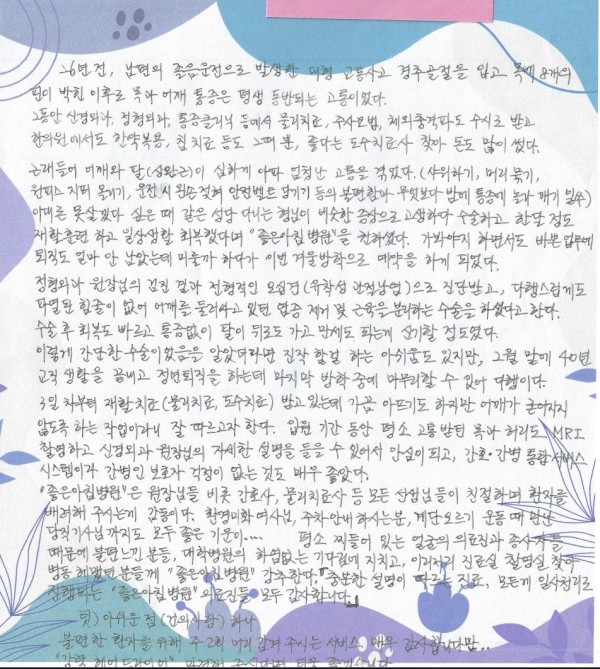 26년전, 남편의 졸음운전으로 발생한 대형 교통사고 경추골절을 입고 목에 8개의
핀이 박힌 이후로 목과 어깨 통증은 평생 동반되는 고통이었다.
그동안 신경외과, 정형외과, 통증클리닉 등에서 물리치료, 주사요법, 체외충격파도 수시로 받고
한의원에서도 한약복용, 침 치료 등도 그때 뿐, 좋다는 도수치료사 찾아 돈도 많이 썼다.
근래들어 어깨와 팔(상완근)이 심하게 아파 엄청난 고통을 겪었다. (샤워하기, 머리 묶기,
원피스 지퍼 올리기, 운전시 왼손 젖혀 안전벨트 당기기 등의 불편함과 무엇보다 밤에 통증에 놀라 깨기 일쑤)
이대론 못살겠다 싶은 때 같은 성당 다니는 형님이 비슷한 증상으로 고생하다 수술하고 한달 정도
재활훈련 하고 일상생활 회복했다며 "좋은아침병원"을 권하셨다. 가봐야지 하면서도 바쁜 업무에
퇴직도 얼마 안 남았는데 미룰까 하다가 이번 겨울방학으로 예약을 하게 되었다.
정형외과 원장님의 검진 결과 전형적인 오십견(유착성 관절낭염)으로 진단받고, 다행스럽게도
파열된 힘줄이 없어 어깨를 둘러싸고 있던 염증 제거 및 근육을 분리하는 수술을 하셨다고 한다.
수술 후 회복도 빠르고 통증없이 팔이 뒤로도 가고 만세도 되는게 신기할 정도였다.
이렇게 간단한 수술이 있음을 알았더라면 진작 할걸 하는 아쉬움도 있지만, 2월 말에 40년
교직 생활을 끝내고 정년퇴직을 하는데 마지막 방학 중에 마무리할 수 있어 다행이다.
3일 차부터 재활치료(물리치료, 도수치료) 받고 있는데 가끔 아프기도 하지만 어깨가 굳어지지
않도록 하는 작업이라니 잘 따르고자 한다. 입원 기간 동안 평소 고통받던 목과 허리도 MRI
촬영하고 신경외과 원장님의 자세한 설명을 들을 수 있어서 안심이 되고, 간호·간병 통합서비스
시스템이라 간병인 보호자 걱정이 없는 것도 매우 좋았다.
"좋은아침병원"은 원장님들 비롯 간호사, 물리치료사 등 모든 선생님들이 친절하며 환자를
배려해 주시는게 감동이다. 환경미화 여사님, 주차안내 하시는분, 계단오르기 운동 때 만난
당직기사님까지도 모두 좋은 기운이.... 평소 찌들어 있는 얼굴의 의료진과 종사자들
때문에 불편 느낀 분들, 대학병원의 하염없는 기다림에 지치고, 이리저리 진료실 촬영실 찾아
병동 헤맸던 분들께 "좋은아침병원" 강추한다. 충분한 설명이 따르는 진료, 모든게 일사천리로
진행되는 "좋은아침병원" 의료진들 모두 감사합니다.
덧) 아쉬운 점 (건의사항) 하나
불편한 환자를 위해 주 2회 머리 감겨 주시는 서비스 매우 감사합니다만..